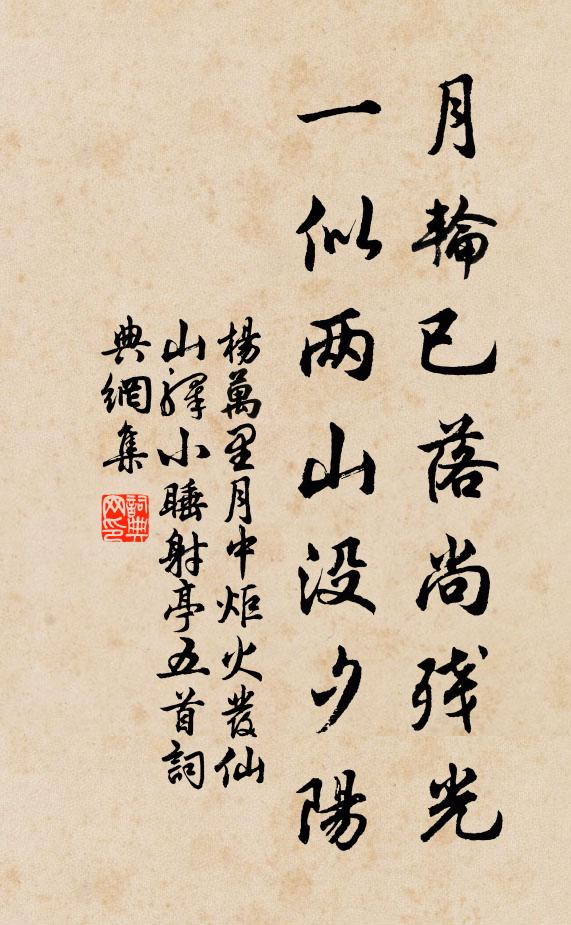 月輪已落尚残光
一似两山没夕陽
楊萬里月中炬火發仙
山驛小睡射亭五首詞
典網集
詞典网印